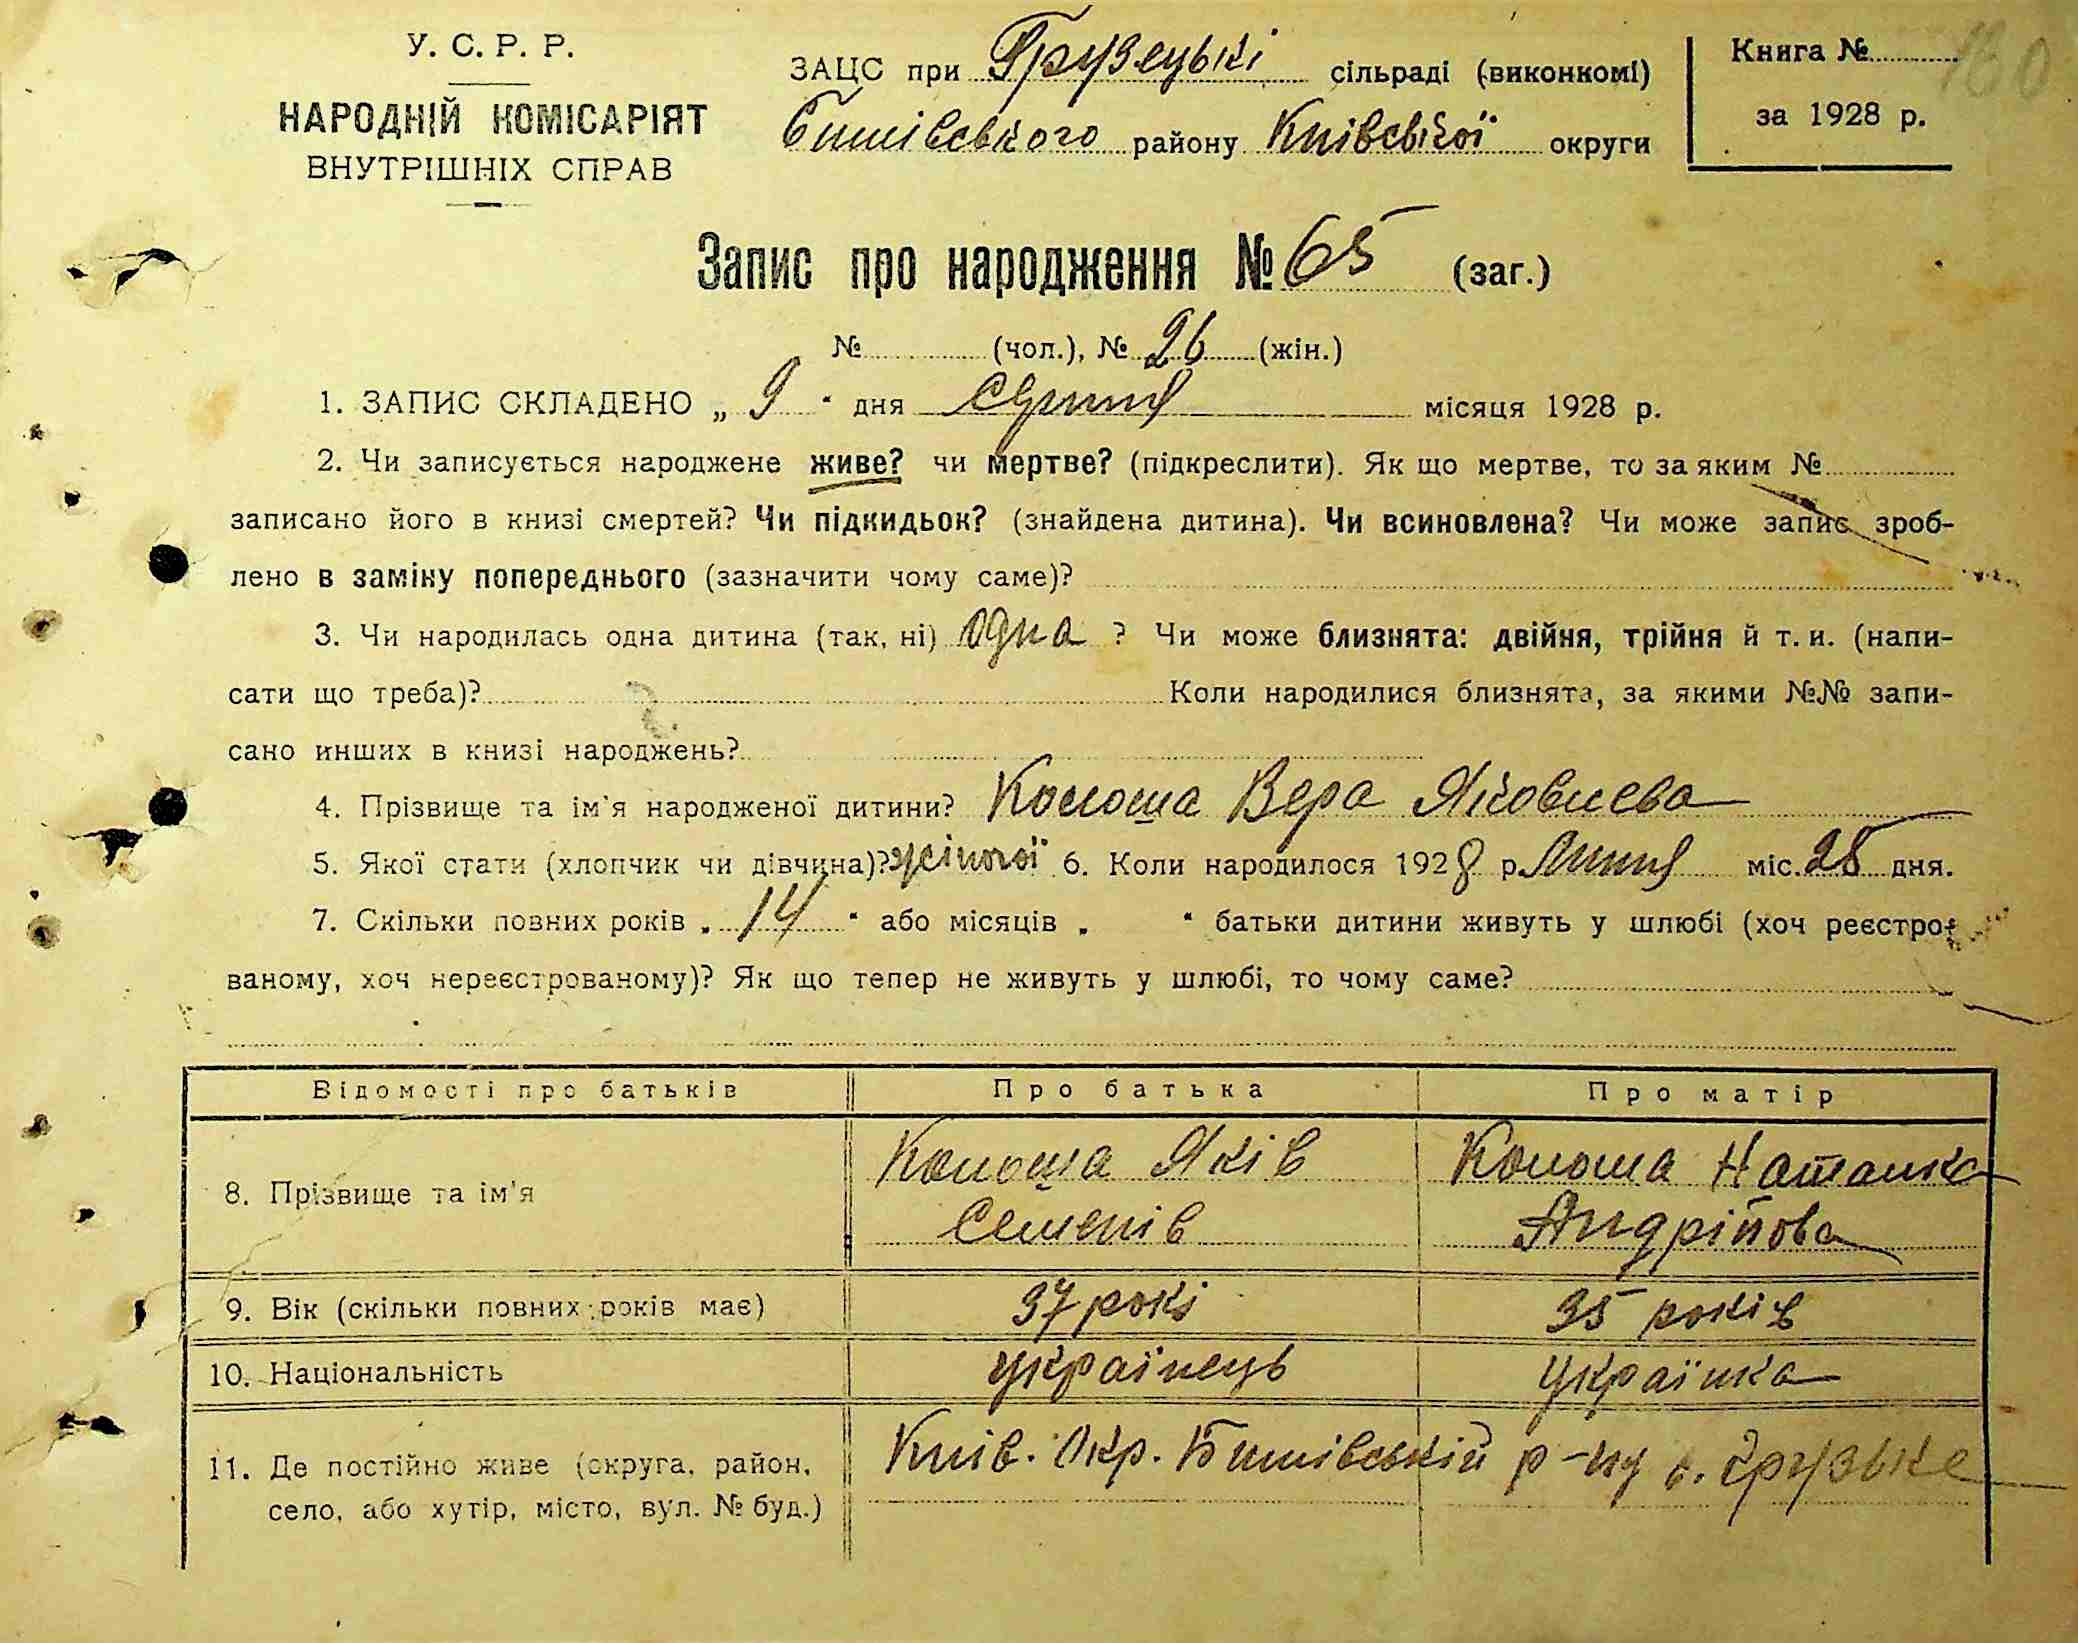 У. С. Р. Р.
НАРОДНІЙ КОМІСАРІЯТ
ВНУТРІШНІХ СПРАВ
ЗАЦС при Грузецькі сільраді (виконкомі)
Бишівського району Київської округи
Книга №
за 1928 р.
160
Запис про народження № 65 (заг.)
№ (чол.), № 26 (жін.)
1. ЗАПИС СКЛАДЕНО „ 9 “ дня серпня місяця 1928 р.
2. Чи записується народжене живе? чи мертве? (підкреслити). Як що мертве, то за яким №
записано його в книзі смертей? Чи підкидьок? (знайдена дитина). Чи всиновлена? Чи може запис зроб-
лено в заміну попереднього (зазначити чому саме)?
3. Чи народилась одна дитина (так, ні) одна ? Чи може близнята: двійня, трійня й т. и. (напи-
сати що треба)? Коли народилися близнята, за якими №№ запи-
сано инших в книзі народжень?
4. Прізвище та ім'я народженої дитини? Колоша Вера Яковлева
5. Якої стати (хлопчик чи дівчина)? жіночої 6. Коли народилося 1928 р. Липня міс. 28 дня.
7. Скільки повних років „ 14 “ або місяців „ “ батьки дитини живуть у шлюбі (хоч реєстро-
ваному, хоч нереєстрованому)? Як що тепер не живуть у шлюбі, то чому саме?
Відомості про батьків Про батька Про матір
8. Прізвище та ім'я Колоша Яків Колоша Наталка
Семенів Андріїова
9. Вік (скільки повних років має) 37 рокі 35 років
10. Національність українець Українка
11. Де постійно живе (округа, район, Київ. Окр. Бишівській р-ну с. Грузьке
село, або хутір, місто, вул. № буд.)